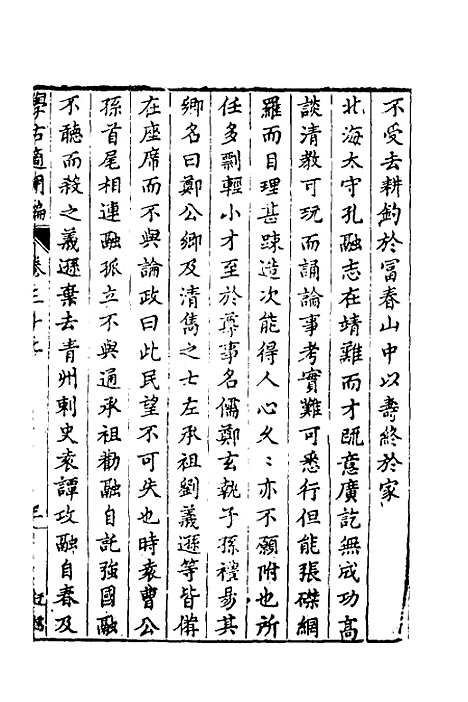 不受去耕釣於富春山中以壽終於家
北海太守孔融志在靖難而才疏意廣訖無成功高
談清教可玩而誦論事考實難可悉行但能張磔網
羅而目理甚疎造次能得人心久〻亦不願附也所
任多剽輕小才至於尊事名儒鄭玄執子孫禮易其
鄉名曰鄭公鄉及清雋之士左承祖劉義遜等皆備
在座席而不與論政曰此民望不可失也時袁曹公
孫首尾相連融孤立不與通承祖勸融自託強國融
不聽而殺之義遜棄去青州刺史袁譚攻融自春及
學古適用編 卷三十